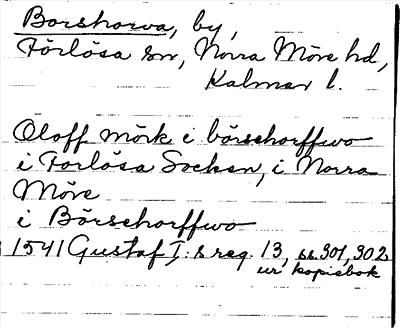 Borshorva, by,
Förlösa sn, Norra Möre hd,
Kalmar l.
Oloff mörk i börschorffwo
i Förlösa Socken, i Norra
Möre
i Börschorffwo
1541 Gustaf I:s reg. 13, ss. 301, 302
ur kopiebok